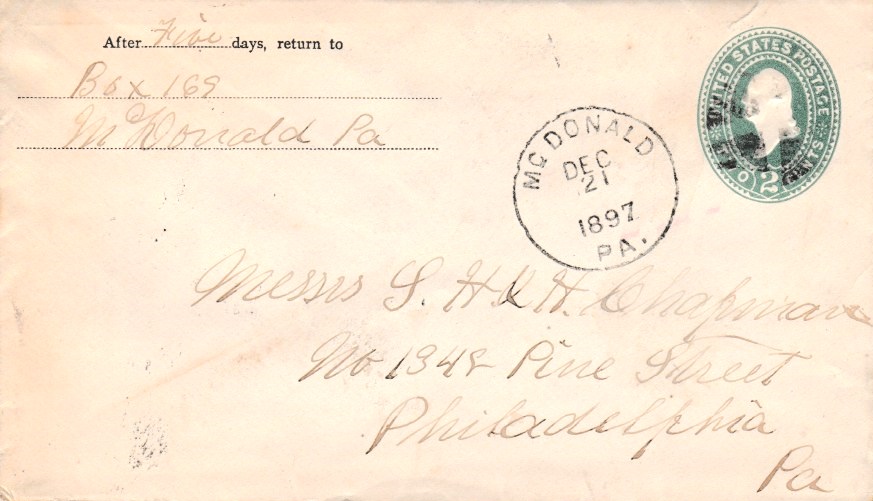 After Five days, return to
Box 169
McDonald Pa
UNITED STATES POSTAGE
TWO 2 CENTS
MCDONALD
DEC
21
1897
PA.
Messrs S. H & H. Chapman
No 1348 Pine Street
Philadelphia
Pa